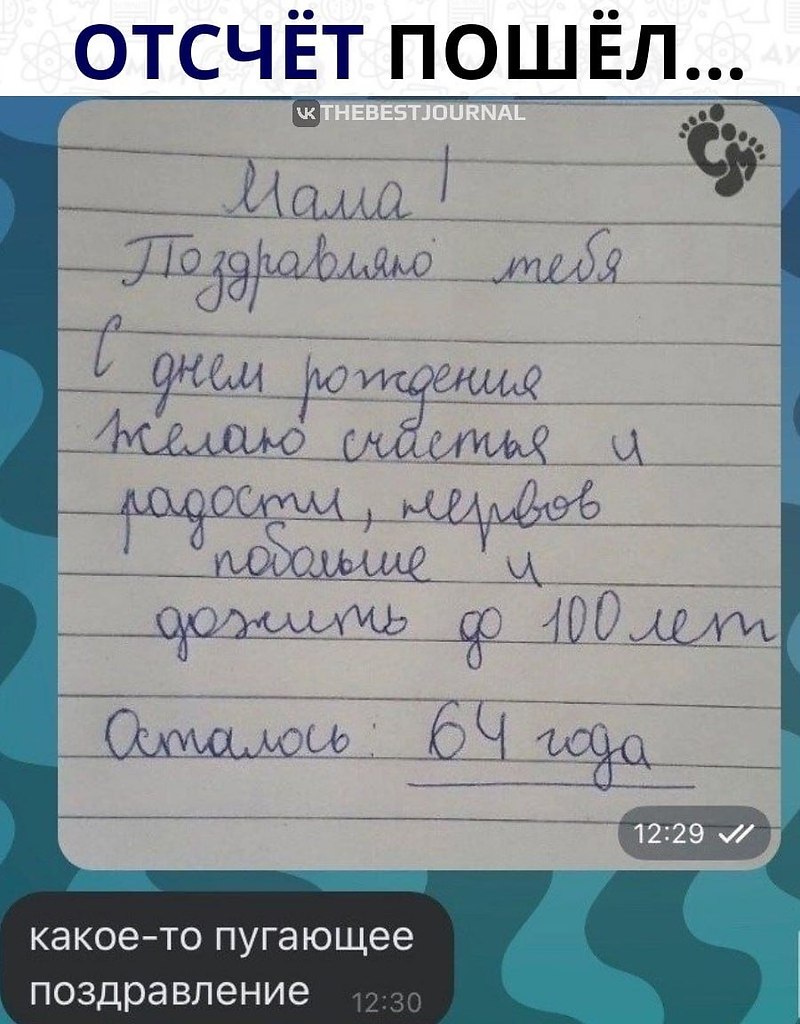 ОТСЧЁТ ПОШЁЛ...
THEBESTJOURNAL
СМ
Мама!
Поздравляю тебя
С днем рождения
желаю счастья и
радости, нервов
побольше и
дожить до 100 лет
Осталось: 64 года
12:29
какое-то пугающее
поздравление 12:30